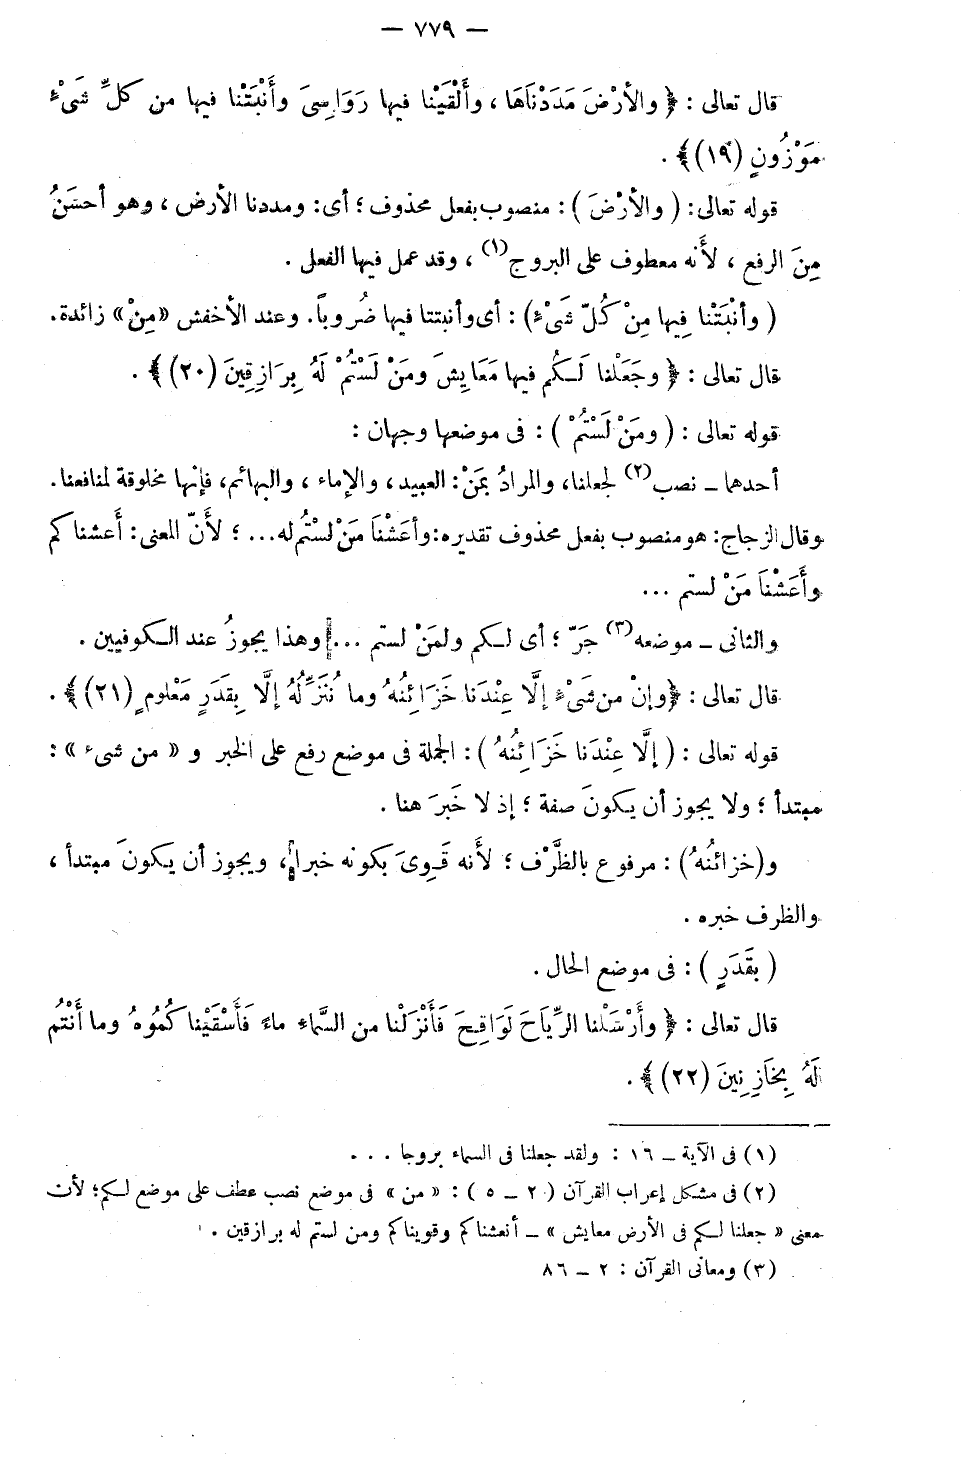 — ٧٧٩ —
قال تعالى : ﴿ والأرْضَ مَدَدْنَاهَا ، وأَلْقَيْنا فيها رَوَاسِىَ وأَنْبَتْنا فيها من كلِّ شىْءٍ
مَوْزُونٍ (١٩)﴾ .
قوله تعالى: ( والأرْضَ ) : منصوب بفعل محذوف ؛ أى: ومددنا الأرض ، وهو أحسَنُ
مِنَ الرفع ، لأَنه معطوف على البروج(١) ، وقد عمل فيها الفعل .
( وأنْبَتْنا فِيها مِنْ كُلّ شَىْءٍ) : أى وأنبتنا فيها ضُروباً. وعند الأخفش «مِنْ» زائدة.
قال تعالى : ﴿ وجَعَلْنا لَـكُم فيها مَعَايِشَ ومَنْ لَسْتُمْ لَهُ بِرَازِقِينَ (٢٠)﴾ .
قوله تعالى : ( ومَنْ لَسْتُمْ ) : فى موضعها وجهان :
أحدهما ـ نصب(٢) لجعلنا، والمرادُ بمَنْ: العبيد ، والإماء ، والبهائم، فإنها مخلوقة لمنافعنا.
وقال الزجاج: هو منصوب بفعل محذوف تقديره: وأعَشْنَا مَنْ لسْتُم له... ؛ لأَنّ المعنى: أَعشناكم
وأَعَشْنَا مَنْ لستم ...
والثانى ـ موضعه(٣) جَرّ ؛ أى لـكم ولمَنْ لستم ... وهذا يجوزُ عند الـكوفيين .
قال تعالى : ﴿وإنْ من شَىْءٍ إلَّا عِنْدَنا خَزَائِنُهُ وما نُنَزِّلُهُ إلَّا بِقَدَرٍ مَعْلومٍ (٢١)﴾ .
قوله تعالى : ( إلَّا عِنْدَنا خَزَائِنُهُ ) : الجملة فى موضع رفع على الخبر و « من شىء » :
مبتدأ ؛ ولا يجوز أن يكونَ صفة ؛ إذ لا خَبَرَ هنا .
و(خزائنُهُ) : مرفوع بالظَّرْف ؛ لأَنه قَوِىَ بكونه خبرا، ويجوز أن يكونَ مبتدأ ،
والظرف خبره .
( بقَدَرٍ ) : فى موضع الحال .
قال تعالى : ﴿ وأَرْسَلْنا الرِّيَاحَ لَوَاقِحَ فَأَنْزَلْنا من السَّماءِ ماءً فَأَسْقَيْناكُمُوهُ وما أَنْتُم
لَهُ بِخَازِنِينَ (٢٢)﴾ .
(١) فى الآية ـ ١٦ : ولقد جعلنا فى السماء بروجا . . .
(٢) فى مشكل إعراب القرآن ( ٢ ـ ٥ ) : « من » فى موضع نصب عطف على موضع لـكم؛ لأن
معنى « جعلنا لـكم فى الأرض معايش » ـ أنعشناكم وقويناكم ومن لستم له برازقين .
(٣) ومعانى القرآن : ٢ ـ ٨٦